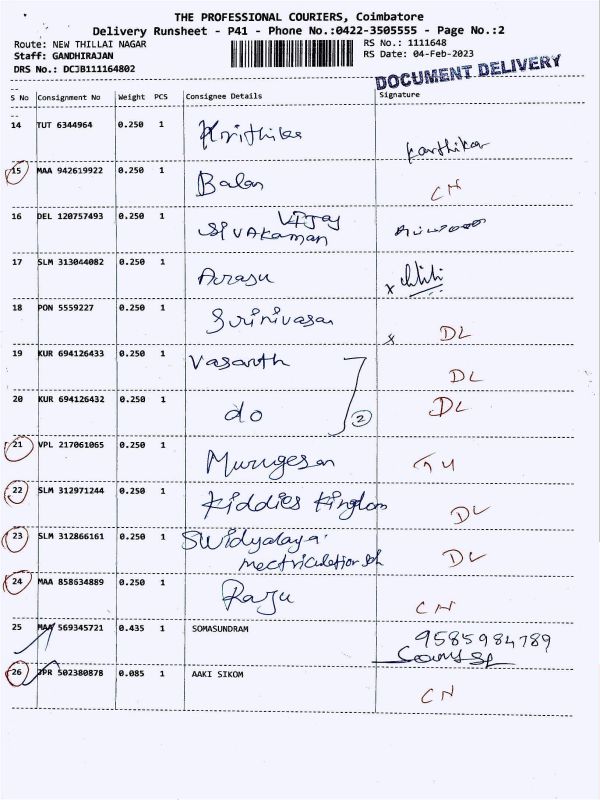 THE PROFESSIONAL COURIERS, Coimbatore
Delivery Runsheet - P41 - Phone No.:0422-3505555 - Page No.:2
Route: NEW THILLAI NAGAR RS No.: 1111648
Staff: GANDHIRAJAN RS Date: 04-Feb-2023
DRS No.: DCJB111164802
DOCUMENT DELIVERY
S No Consignment No Weight PCS Consignee Details Signature
14 TUT 6344964 0.250 1 Krithika Karthika
15 MAA 942619922 0.250 1 Balan CN
16 DEL 120757493 0.250 1 Vijay
Sivakaman
17 SLM 313044082 0.250 1 Arrasu x
18 PON 5559227 0.250 1 Srinivasan x DL
19 KUR 694126433 0.250 1 Vasanth DL
20 KUR 694126432 0.250 1 do 2 DL
21 VPL 217061065 0.250 1 Murugesan
22 SLM 312971244 0.250 1 Kiddies Kingdom DL
23 SLM 312866161 0.250 1 SWidyalaya
mectriculation sch DL
24 MAA 858634889 0.250 1 Raju CN
25 MAA 569345721 0.435 1 SOMASUNDRAM 9585984789
26 JPR 502380878 0.085 1 AAKI SIKOM CN